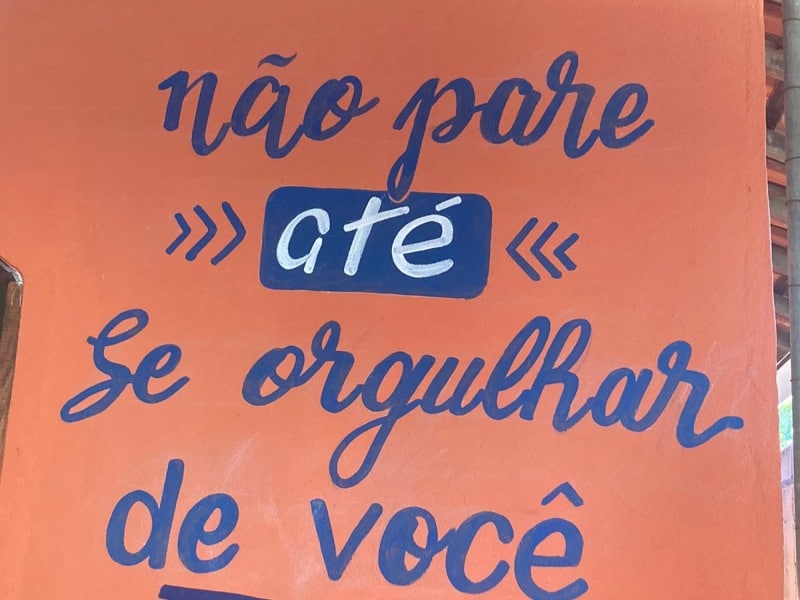 não pare
>>> até <<<
Se orgulhar
de você